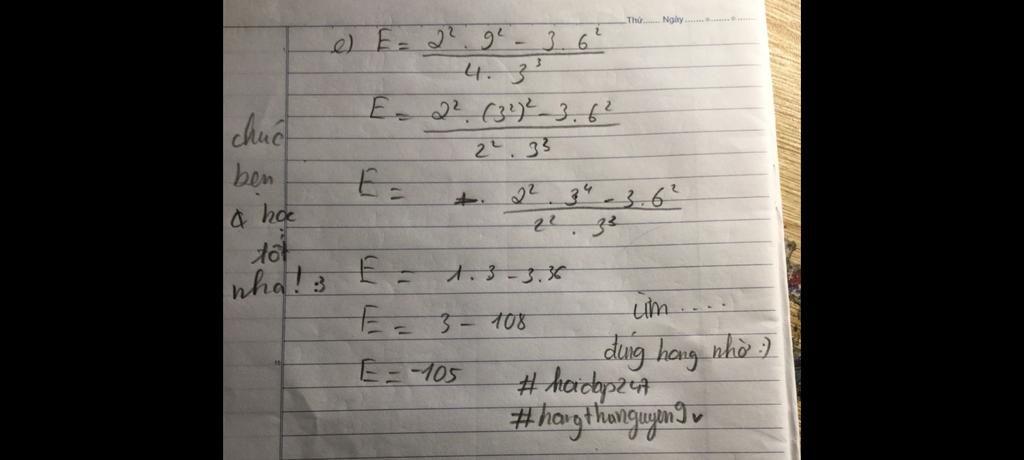 Thứ...... Ngày.......-.......-.......
e) E = 2² . 9² - 3 . 6² / 4 . 3³
E = 2² . (3²)² - 3 . 6² / 2² . 3³
E = 2² . 3⁴ - 3 . 6² / 2² . 3³
E = 1 . 3 - 3.36
E = 3 - 108
E = -105
chúc
bạn
học
tốt
nha! :3
ừm ....
đúng hong nhờ :)
#hoidap247